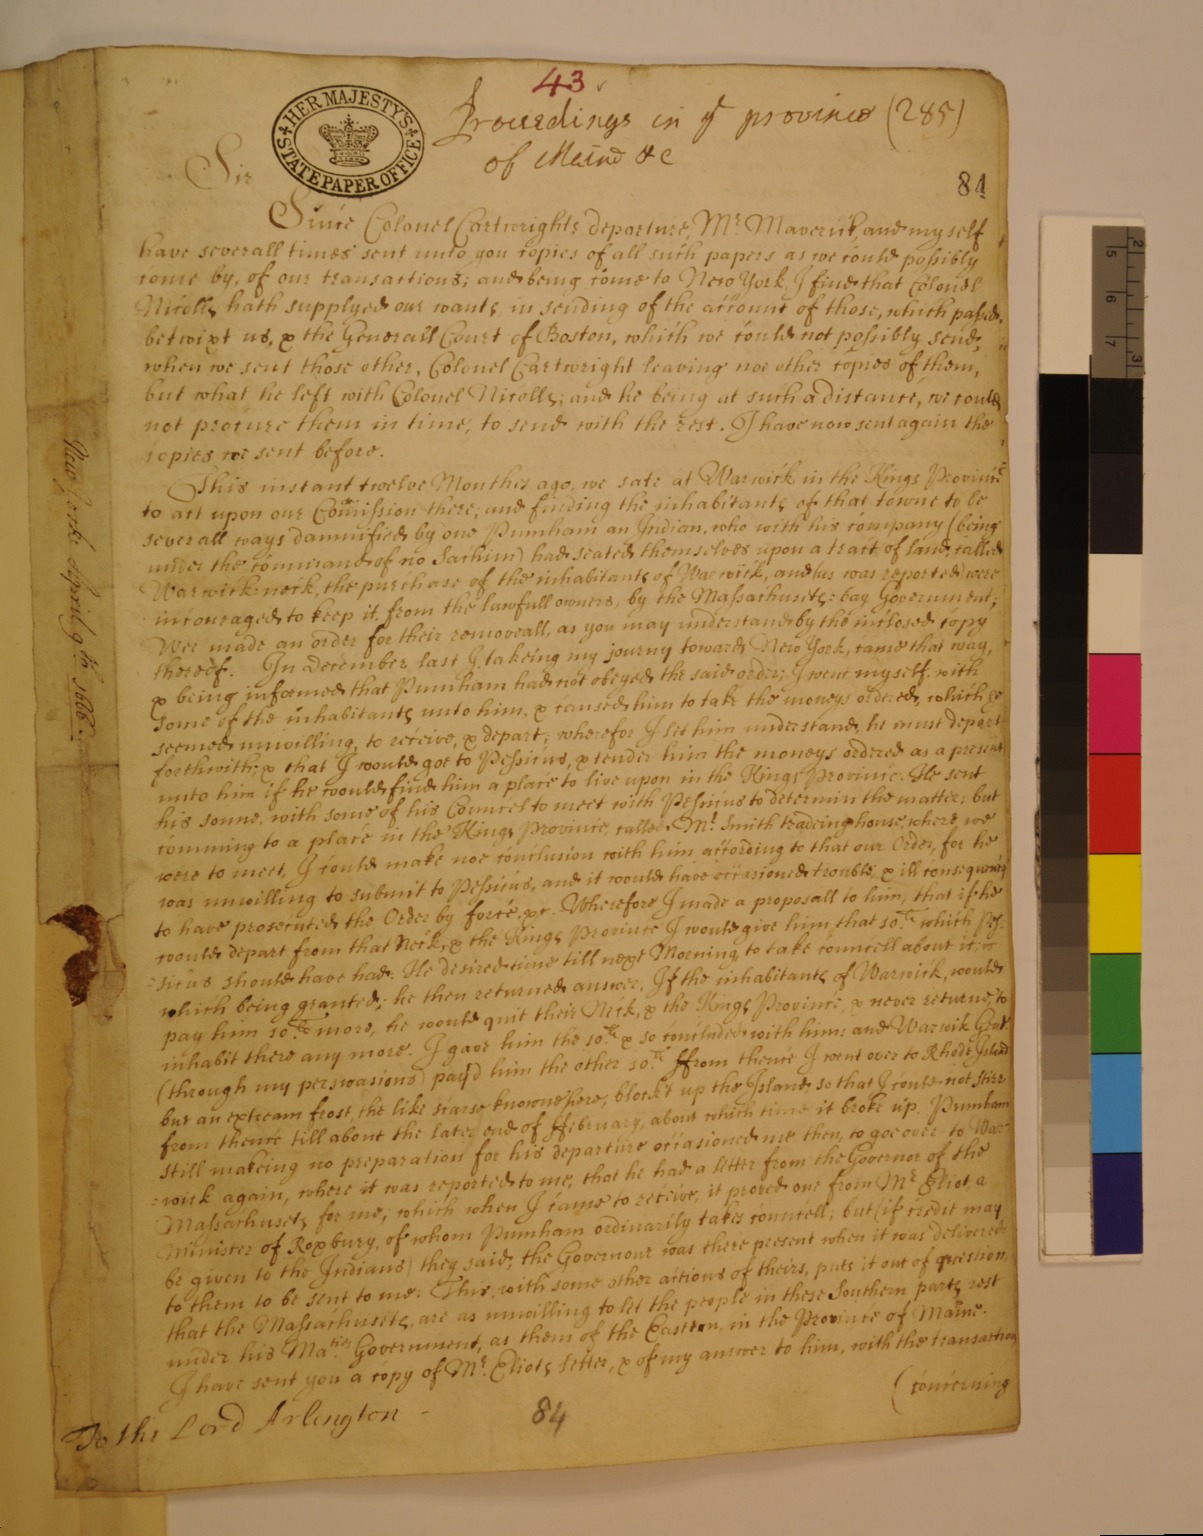 43
Proceedings in yͤ province (285)
of Maine &c
HER MAJESTY'S STATE PAPER OFFICE
Sir
84
Since Colonel Cartwrights departure, Mr. Maverick and my self
have severall times sent unto you copies of all such papers as we could possibly
come by, of our transactions; and being come to New York, I find that Colonel
Nicolls hath supplyed our wants, in sending of the account of those, which passed
betwixt us, & the Generall Court of Boston, which we could not possibly send;
when we sent those other, Colonel Cartwright leaving noe other copies of them,
but what he left with Colonel Nicolls; and he being at such a distance, we could
not procure them in time, to send with the rest. I have now sent again the
copies we sent before.
This instant twelve Monthes ago, we sate at Warwick in the Kings Province
to act upon our Comission there; and finding the inhabitants of that towne to be
severall ways damnified by one Pumham an Indian, who with his company (being
under the command of no Sachim) had seated themselves upon a tract of land, called
Warwick-neck, the purchase of the inhabitants of Warwick, and (as was reported) were
incouraged to keep it from the lawfull owners, by the Massachusets-bay Government;
Wee made an order for their removeall, as you may understand by the inclosed copy
thereof. In December last I, takeing my journy towards New York, came that way,
& being informed that Pumham had not obeyed the said order; I went myself, with
some of the inhabitants unto him, & caused him to take the moneys ordered, which he
seemed unwilling, to receive, & depart; wherefor I let him understand, he must depart
forthwith; & that I would goe to Pessicus, & tender him the moneys ordered as a present
unto him if he would find him a place to live upon in the Kings Province. He sent
his sonne, with some of his Councel to meet with Pessicus to determin the matter; but
comming to a place in the Kings Province, called Mr. Smith tradeing house, where we
were to meet, I could make noe conclusion with him according to that our Order, for he
was unwilling to submit to Pessicus, and it would have occasioned trouble, & ill consequence
to have prosecuted the Order by force, &c. Wherefore I made a proposall to him, that if he
would depart from that Neck, & the Kings Province I would give him that 20.ˡⁱ which Pes-
-sicus should have had. He desired time till next Morning, to take councell about it;
which being granted; he then returned answer, If the inhabitants of Warwick, would
pay him 20.ˡⁱ more, he would quit their Neck, & the Kings Province, & never returne, to
inhabit there any more. I gave him the 20.ˡⁱ & so concluded with him: and Warwik Gent.
(through my perswasions) pay'd him the other 20.ˡⁱ ffrom thence I went over to Rhode Island
but an extream frost, the like scarse knowne here, block't up the Island, so that I could not stirr
from thence till about the later end of ffebruary, about which time it broke up. Pumham
still makeing no preparation for his departure occasioned me then, to goe over to War-
-wick again, where it was reported to me, that he had a letter from the Governor of the
Massachusets for me; which when I came to receive, it proved one from Mr. Eliot, a
Minister of Roxbury, of whom Pumham ordinarily takes councell; but (if credit may
be given to the Indians) they said, the Governour was there present when it was delivered
to them to be sent to me. This, with some other actions of theirs, puts it out of question,
that the Massachusets, are as unwilling to let the people in these Southern parts, rest
under his Ma.ᵗⁱᵉˢ Government, as them of the Eastern, in the Province of Maine.
I have sent you a copy of Mr. Eliots letter, & of my answer to him, with the transaction
(concerning
To the Lord Arlington -
84
New York April 9.th 1666.